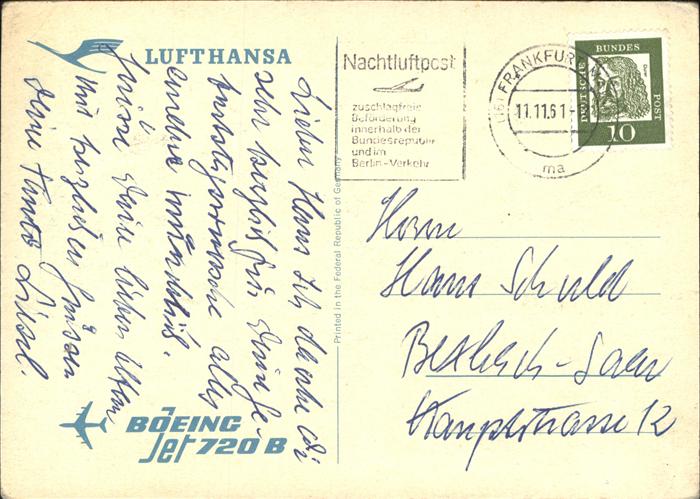 LUFTHANSA
Lieber Hans Ich danke dir
sehr herzlich für Deine Ge-
burtstagswünsche alles
andere mündlich.
Grüsse Deine lieben Eltern
Mit herzlichen Grüssen
Deine Tante Liesel.
BOEING
Jet 720 B
Printed in the Federal Republic of Germany
Nachtluftpost
zuschlagfreie
Beförderung
innerhalb der
Bundesrepublik
und im
Berlin-Verkehr
FRANKFURT
11.11.61
ma
BUNDES
POST
DEUTSCHE
10
Herrn
Hans Schuld
Bexbach-Saar
Hauptstrasse 12